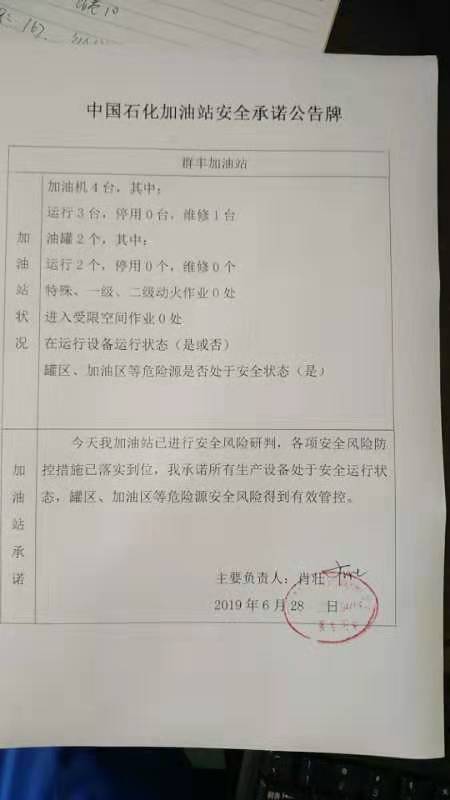 中国石化加油站安全承诺公告牌
群丰加油站
加油站状况
加油机4台，其中：
运行3台，停用0台，维修1台
油罐2个，其中：
运行2个，停用0个，维修0个
特殊、一级、二级动火作业0处
进入受限空间作业0处
在运行设备运行状态（是或否）
罐区、加油区等危险源是否处于安全状态（是）
加油站承诺
今天我加油站已进行安全风险研判，各项安全风险防
控措施已落实到位，我承诺所有生产设备处于安全运行状
态，罐区、加油区等危险源安全风险得到有效管控。
主要负责人：肖壮
2019年6月28 日